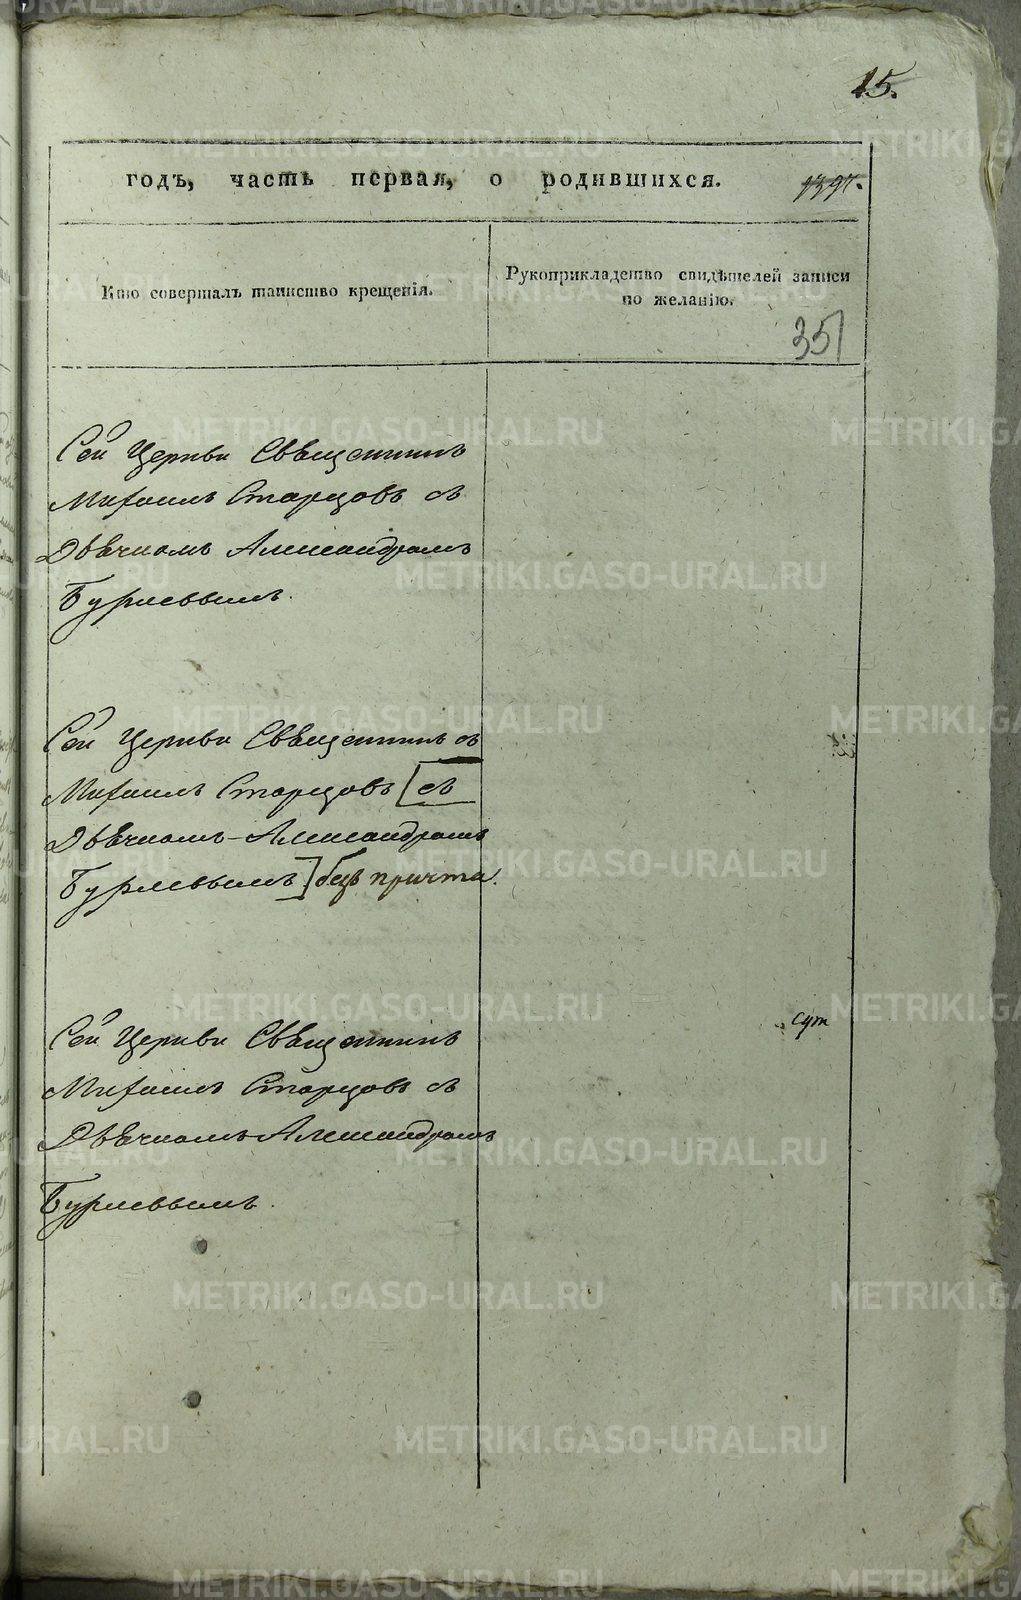 15.
годъ, часть первая, о родившихся. 1397.
Кто совершалъ таинство крещенія.
Рукоприкладство свидѣтелей записи
по желанію.
351
Сей Церкви Свѣщенникъ
Михаилъ Старцовъ съ
Дьячкомъ Александромъ
Бурлевымъ.
Сей Церкви Свѣщенникъ съ
Михаилъ Старцовъ [съ
Дьячкомъ Александромъ
Бурлевымъ] безъ причта.
Сей Церкви Свѣщенникъ
Михаилъ Старцовъ съ
Дьячкомъ Александромъ
Бурлевымъ.
METRIKI.GASO-URAL.RU